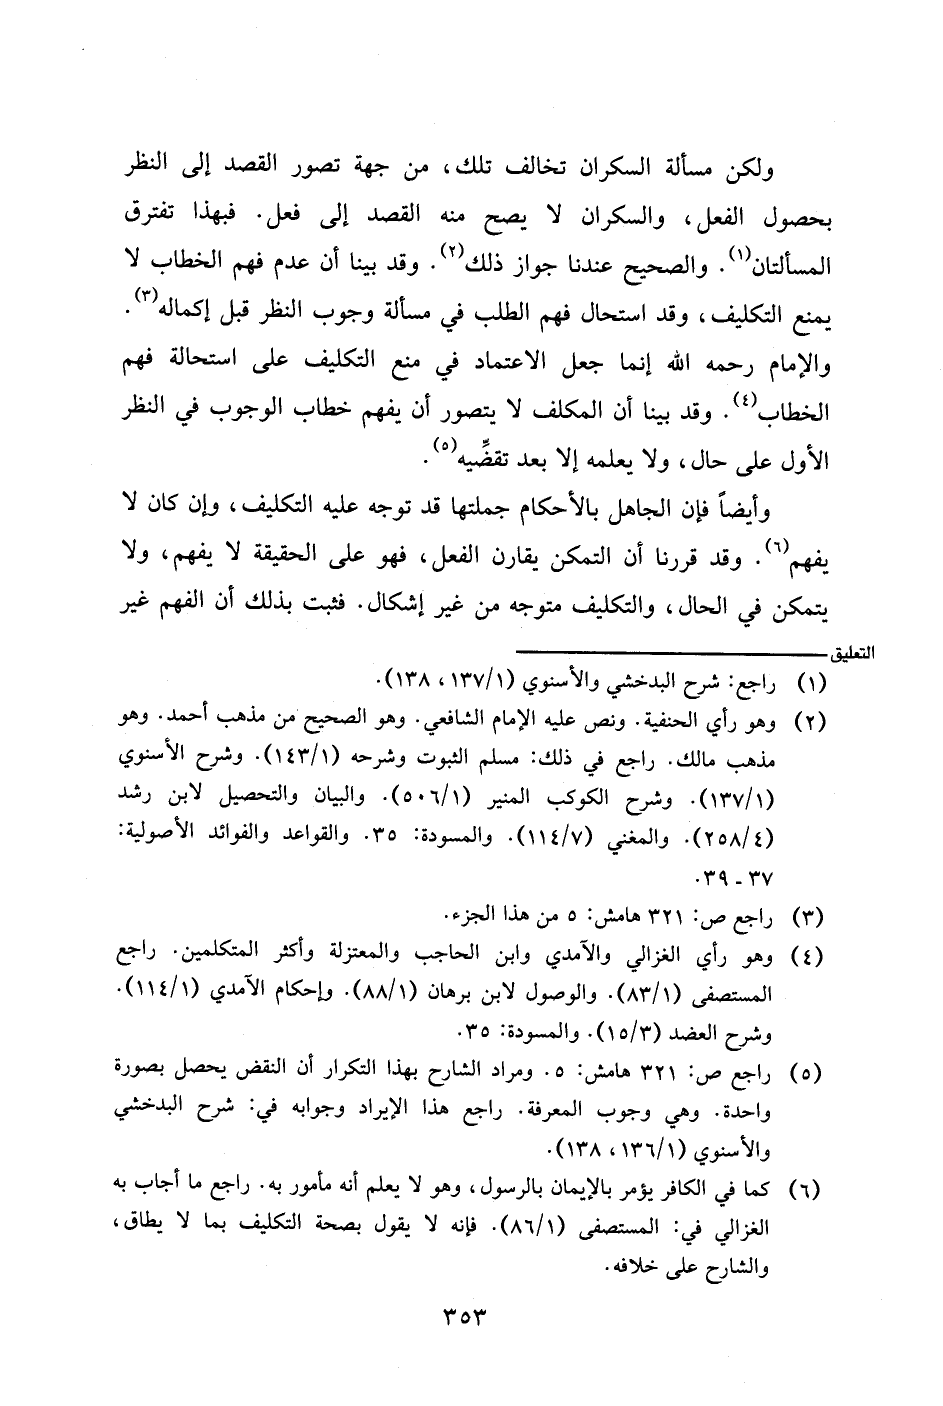 ولكن مسألة السكران تخالف تلك، من جهة تصور القصد إلى النظر
بحصول الفعل، والسكران لا يصح منه القصد إلى فعل. فبهذا تفترق
المسألتان(١). والصحيح عندنا جواز ذلك(٢). وقد بينا أن عدم فهم الخطاب لا
يمنع التكليف، وقد استحال فهم الطلب في مسألة وجوب النظر قبل إكماله(٣).
والإمام رحمه الله إنما جعل الاعتماد في منع التكليف على استحالة فهم
الخطاب(٤). وقد بينا أن المكلف لا يتصور أن يفهم خطاب الوجوب في النظر
الأول على حال، ولا يعلمه إلا بعد تقضِّيه(٥).
وأيضاً فإن الجاهل بالأحكام جملتها قد توجه عليه التكليف، وإن كان لا
يفهم(٦). وقد قررنا أن التمكن يقارن الفعل، فهو على الحقيقة لا يفهم، ولا
يتمكن في الحال، والتكليف متوجه من غير إشكال. فثبت بذلك أن الفهم غير
التعليق
(١) راجع: شرح البدخشي والأسنوي (١/١٣٧، ١٣٨).
(٢) وهو رأي الحنفية. ونص عليه الإمام الشافعي. وهو الصحيح من مذهب أحمد. وهو
مذهب مالك. راجع في ذلك: مسلم الثبوت وشرحه (١/١٤٣). وشرح الأسنوي
(١/١٣٧). وشرح الكوكب المنير (١/٥٠٦). والبيان والتحصيل لابن رشد
(٤/٢٥٨). والمغني (٧/١١٤). والمسودة: ٣٥. والقواعد والفوائد الأصولية:
٣٧ - ٣٩.
(٣) راجع ص: ٣٢١ هامش: ٥ من هذا الجزء.
(٤) وهو رأي الغزالي والآمدي وابن الحاجب والمعتزلة وأكثر المتكلمين. راجع
المستصفى (١/٨٣). والوصول لابن برهان (١/٨٨). وإحكام الآمدي (١/١١٤).
وشرح العضد (٣/١٥). والمسودة: ٣٥.
(٥) راجع ص: ٣٢١ هامش: ٥. ومراد الشارح بهذا التكرار أن النقض يحصل بصورة
واحدة. وهي وجوب المعرفة. راجع هذا الإيراد وجوابه في: شرح البدخشي
والأسنوي (١/١٣٦، ١٣٨).
(٦) كما في الكافر يؤمر بالإيمان بالرسول، وهو لا يعلم أنه مأمور به. راجع ما أجاب به
الغزالي في: المستصفى (١/٨٦). فإنه لا يقول بصحة التكليف بما لا يطاق،
والشارح على خلافه.
٣٥٣